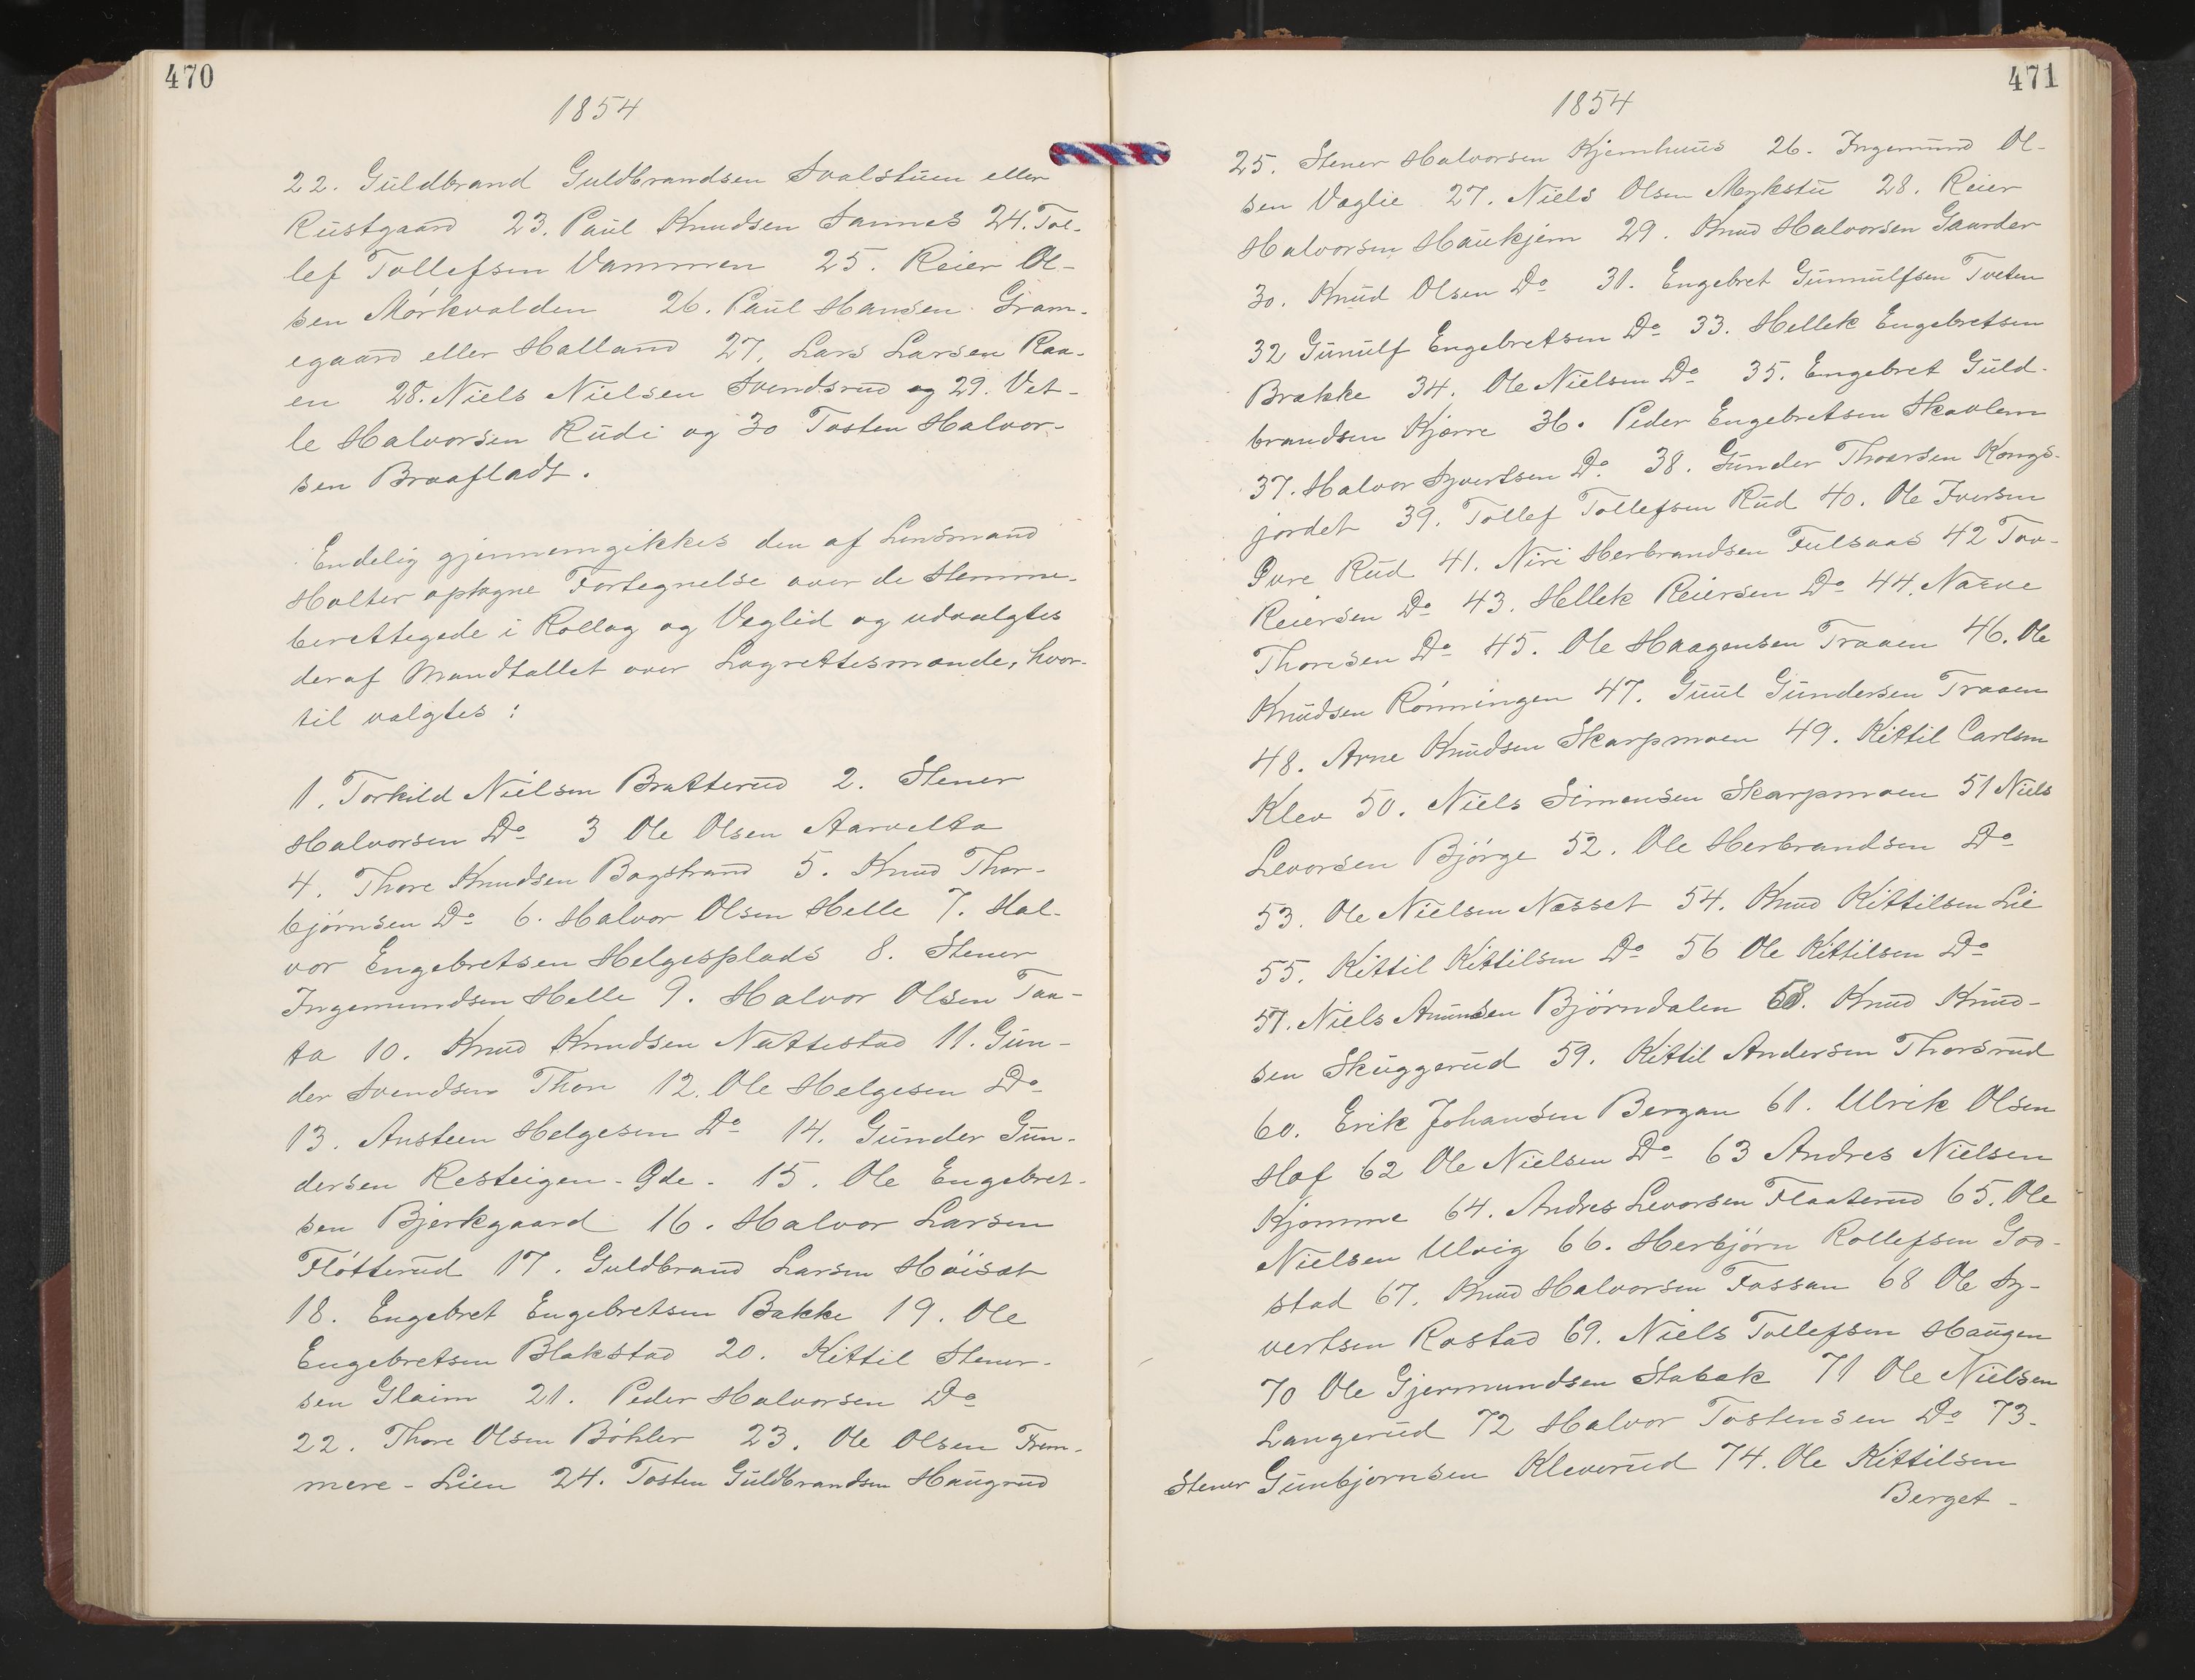 470
1854
22. Guldbrand Guldbrandsen Svalstuen eller
Rustgaard 23. Paul Knudsen Sannes 24. Tol-
lef Tollefsen Vammren 25. Reier Ol-
sen Mørkvolden 26. Paul Hansen Gram-
egaard eller Halland 27. Lars Larsen Raa-
en 28. Niels Nielsen Svendsrud og 29. Vet-
le Halvorsen Rudi og 30 Tosten Halvor-
sen Braafladt.
Endelig gjennemgikkes den af Lensmand
Holter optagne Fortegnelse over de Stemme-
berettegede i Rollag og Veglid og udvalgtes
deraf Mandtallet over Lagrettesmænde, hvor-
til valgtes:
1. Torkild Nielsen Bratterud 2. Stener
Halvorsen Do 3 Ole Olsen Aarvelta
4. Thore Knudsen Bagstrand 5. Knud Thor-
bjørnsen Do 6. Halvor Olsen Helle 7. Hal-
vor Engebretsen Helgesplads 8. Stener
Ingemundsen Helle 9. Halvor Olsen Taa-
ta 10. Knud Knudsen Nattestad 11. Gun-
der Svendsen Thon 12. Ole Helgesen Do
13. Ansteen Helgesen Do 14. Gunder Gun-
dersen Resteigen - Gde. 15. Ole Engebret-
sen Bjerkgaard 16. Halvor Larsen
Fløtterud 17. Guldbrand Larsen Høisæt
18. Engebret Engebretsen Bakke 19. Ole
Engebretsen Blakstad 20. Kittil Stener-
sen Glaim 21. Peder Halvorsen Do
22. Thore Olsen Bøhler 23. Ole Olsen Frem-
mere - Lien 24. Tosten Guldbrandsen Haugrud
471
1854
25. Stener Halvorsen Kjemhuus 26. Ingemund Ol-
sen Væglie 27. Niels Olsen Mykstu 28. Reier
Halvorsen Haukjem 29. Knud Halvorsen Gaarder
30. Knud Olsen Do 31. Engebret Gunnulfsen Tveten
32 Gunulf Engebretsen Do 33. Hellek Engebretsen
Brække 34. Ole Nielsen Do 35. Engebret Guld-
brandsen Kjærre 36. Peder Engebretsen Skavlem
37. Halvor Syvertsen Do 38. Gunder Thoersen Kongs-
jordet 39. Tollef Tollefsen Rud 40. Ole Iversen
Øvre Rud 41. Niri Herbrandsen Fulsaas 42 Tov-
Reiersen Do 43. Hellek Reiersen Do 44. Narve
Thoresen Do 45. Ole Haagensen Traaen 46. Ole
Knudsen Rønningen 47. Guul Gundersen Traaen
48. Arne Knudsen Skarpmoen 49. Kittil Carlsen
Klev 50. Niels Simensen Skarpmoen 51 Niels
Levorsen Bjørge 52. Ole Herbrandsen Do
53. Ole Nielsen Næsset 54. Knud Kittilsen Lie
55. Kittil Kittilsen Do 56 Ole Kittilsen Do
57. Niels Amundsen Bjørndalen 58. Knud Knud-
sen Skuggerud 59. Kittil Andersen Thorsrud
60. Erik Johansen Bergan 61. Ulrik Olsen
Hof 62 Ole Nielsen Do 63 Andres Nielsen
Kjomme 64. Andres Levorsen Flaaterud 65. Ole
Nielsen Ulvig 66. Herbjørn Rollefsen God-
stad 67. Knud Halvorsen Fossan 68 Ole Sy-
vertsen Rostad 69. Niels Tollefsen Haugen
70 Ole Gjermundsen Stabæk 71 Ole Nielsen
Langerud 72 Halvor Tostensen Do 73.
Stener Gunbjørnsen Kleverud 74. Ole Kittilsen
Berget -